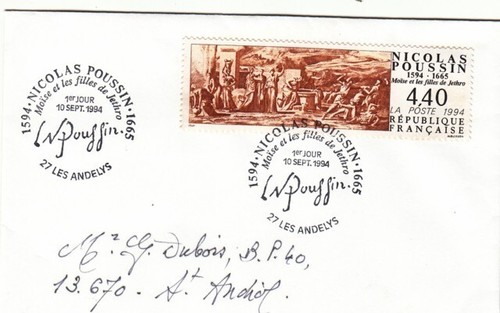 1594 • NICOLAS POUSSIN • 1665
Moïse et les filles de Jethro
1er JOUR
10 SEPT. 1994
N Poussin.
27 LES ANDELYS
NICOLAS
POUSSIN
1594 • 1665
Moïse et les filles de Jethro
4,40
LA POSTE 1994
RÉPUBLIQUE
FRANÇAISE
1594 • NICOLAS POUSSIN • 1665
Moïse et les filles de Jethro
1er JOUR
10 SEPT. 1994
N Poussin.
27 LES ANDELYS
Mr G. Dubois, B.P. 40,
13.670 - St Andiol.